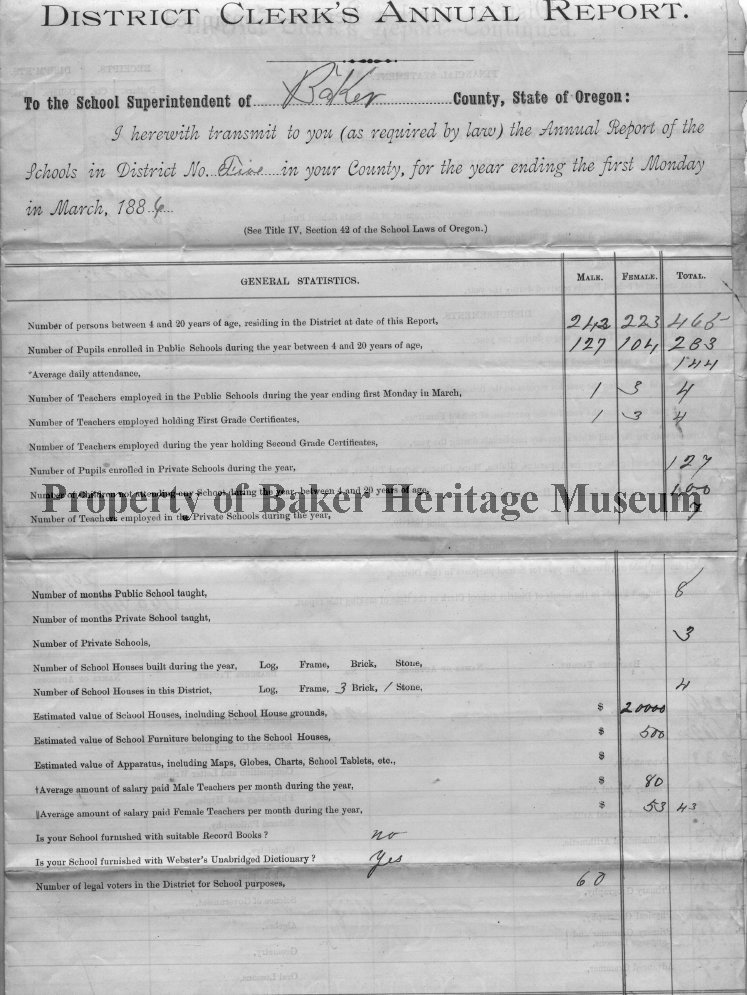 DISTRICT CLERK'S ANNUAL REPORT.
To the School Superintendent of Baker County, State of Oregon:
I herewith transmit to you (as required by law) the Annual Report of the
Schools in District No. Five in your County, for the year ending the first Monday
in March, 1886
(See Title IV, Section 42 of the School Laws of Oregon.)
GENERAL STATISTICS. MALE. FEMALE. TOTAL.
Number of persons between 4 and 20 years of age, residing in the District at date of this Report, 242 223 465
Number of Pupils enrolled in Public Schools during the year between 4 and 20 years of age, 127 104 233
*Average daily attendance, 144
Number of Teachers employed in the Public Schools during the year ending first Monday in March, 1 3 4
Number of Teachers employed holding First Grade Certificates, 1 3 4
Number of Teachers employed during the year holding Second Grade Certificates,
Number of Pupils enrolled in Private Schools during the year, 127
Number of Children not attending any School during the year, between 4 and 20 years of age, 100
Property of Baker Heritage Museum
Number of Teachers employed in the Private Schools during the year, 7
Number of months Public School taught, 8
Number of months Private School taught,
Number of Private Schools, 3
Number of School Houses built during the year, Log, Frame, Brick, Stone,
Number of School Houses in this District, Log, Frame, 3 Brick, 1 Stone, 4
Estimated value of School Houses, including School House grounds, $ 20000
Estimated value of School Furniture belonging to the School Houses, $ 500
Estimated value of Apparatus, including Maps, Globes, Charts, School Tablets, etc., $
†Average amount of salary paid Male Teachers per month during the year, $ 80
‖Average amount of salary paid Female Teachers per month during the year, $ 53 43
Is your School furnished with suitable Record Books? no
Is your School furnished with Webster's Unabridged Dictionary? Yes
Number of legal voters in the District for School purposes, 60